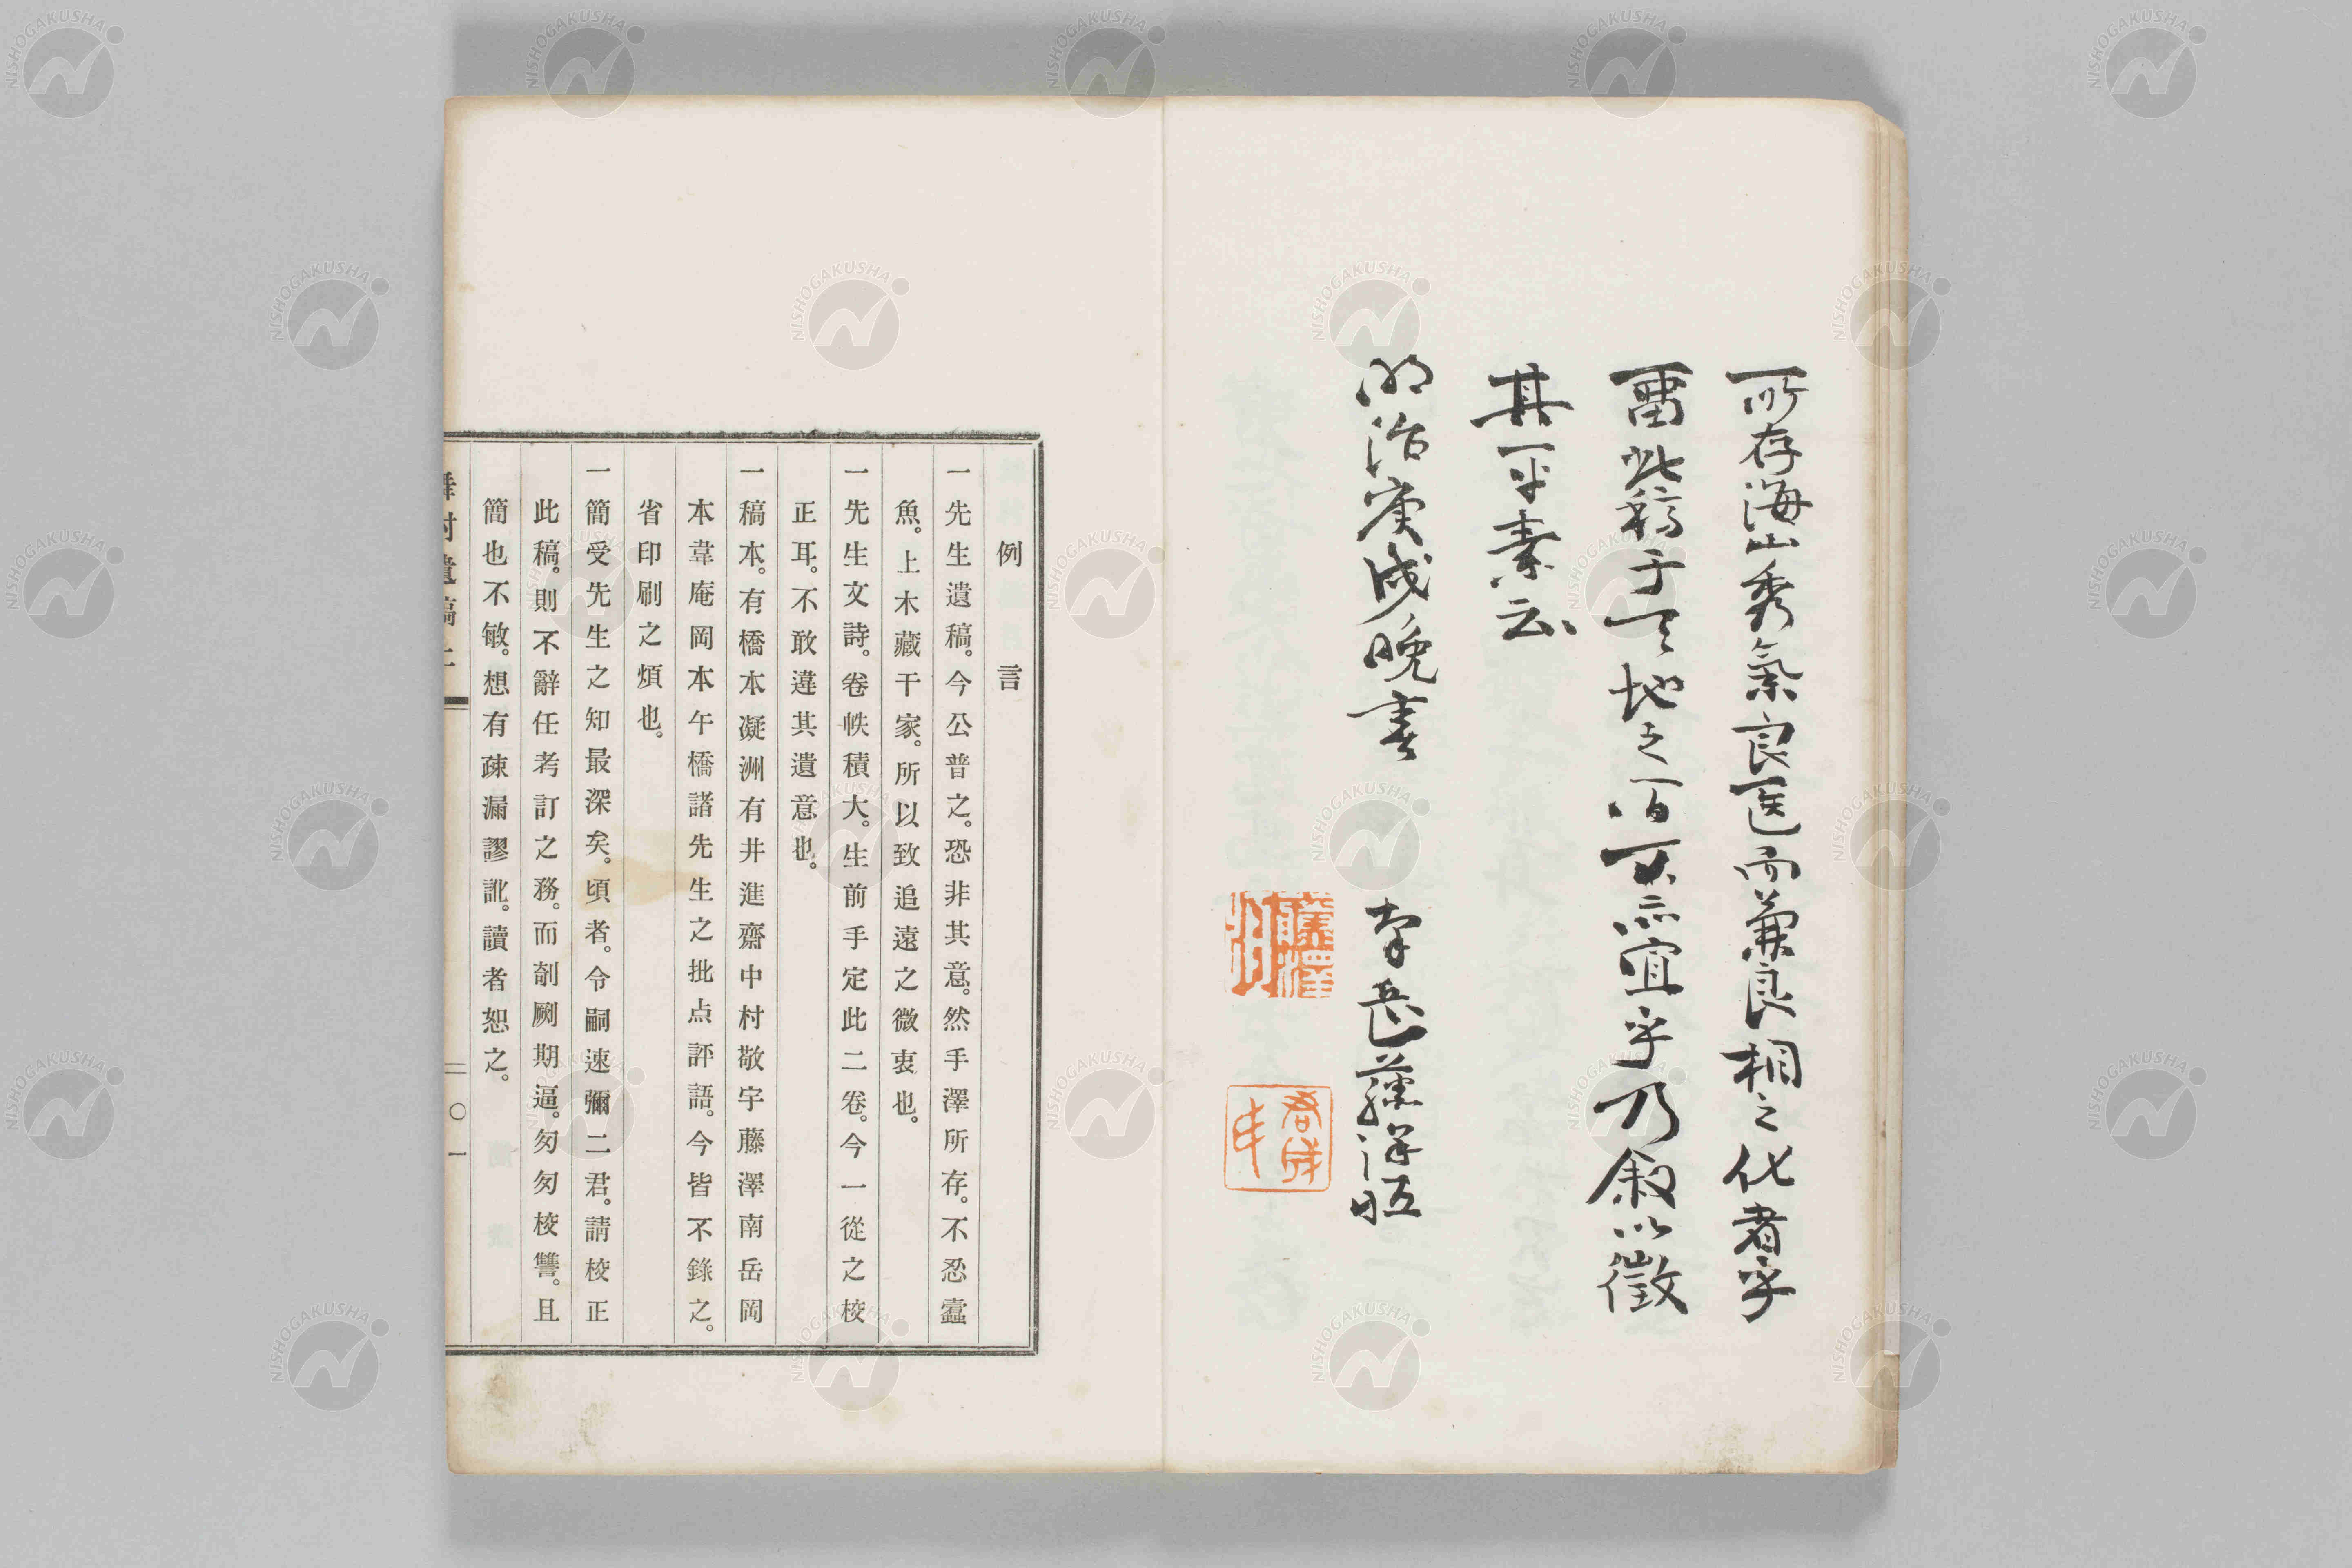 所存海山秀氣良医而兼良相之化者乎
畱此稿于天地之間不亦宜乎乃叙以徵
其平素云
明治庚戌晚書 南岳藤澤恒
例言
一先生遺稿。今公普之。恐非其意。然手澤所存。不忍蠹
魚。上木藏干家。所以致追遠之微衷也。
一先生文詩。卷帙積大。生前手定此二卷。今一從之校
正耳。不敢違其遺意也。
一稿本。有橋本凝洲有井進齋中村敬宇藤澤南岳岡
本韋庵岡本午橋諸先生之批点評語。今皆不錄之。
省印刷之煩也。
一簡受先生之知最深矣。頃者。令嗣速彌二君。請校正
此稿。則不辭任考訂之務。而剞劂期逼。匆匆校讐。且
簡也不敏。想有疎漏謬訛。讀者恕之。
村遺稿上
一〇一
NISHOGAKUSHA